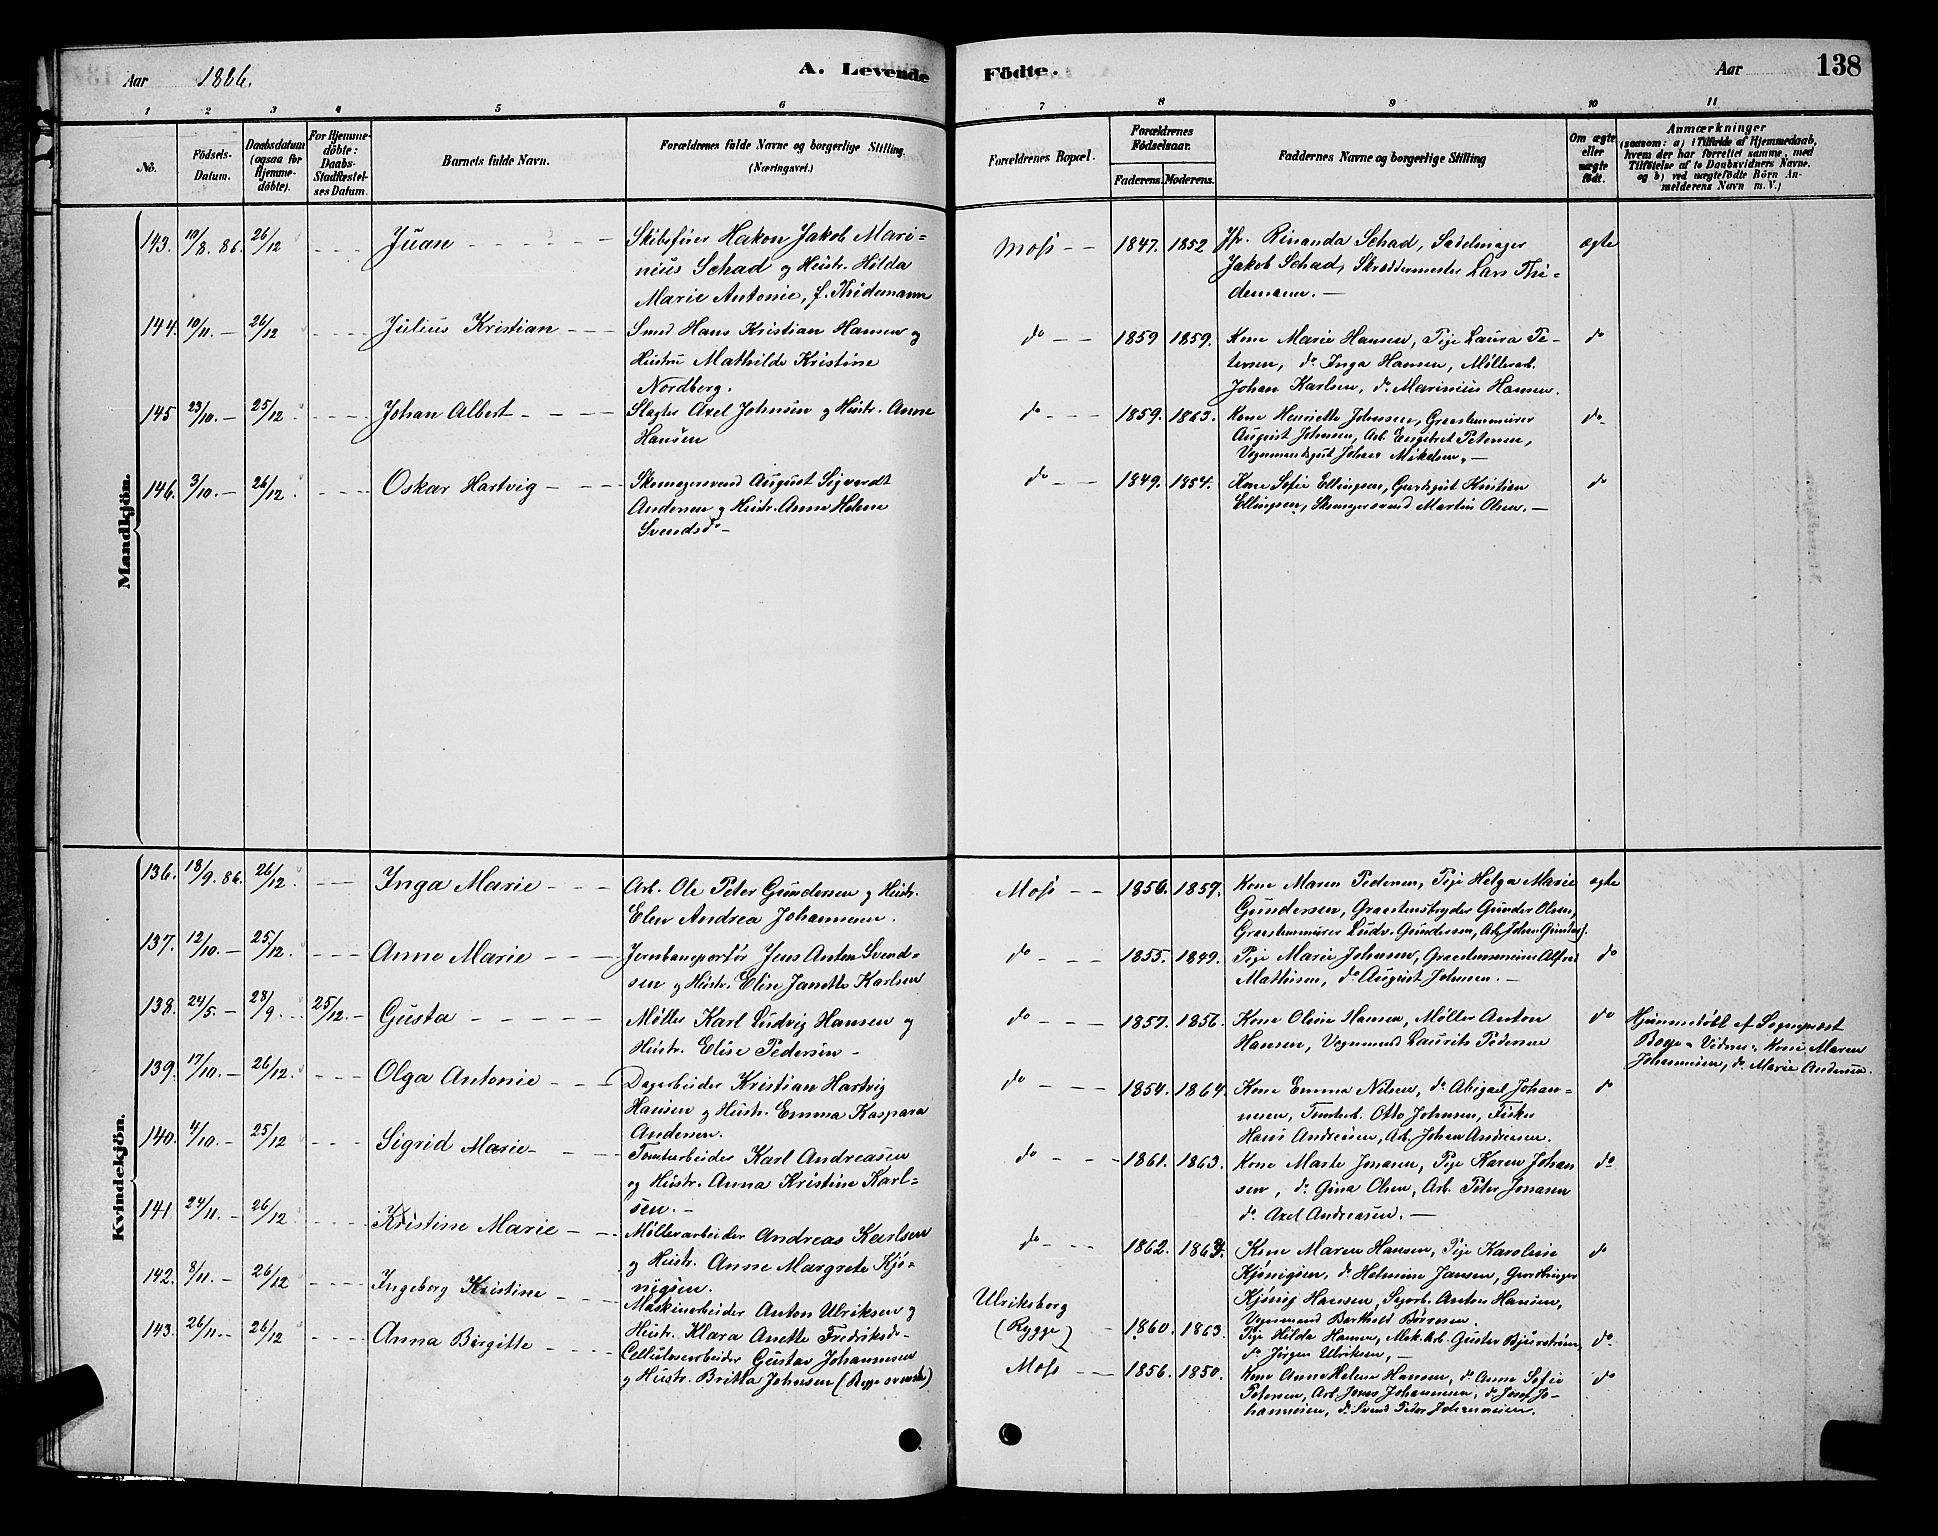 Aar 1886. A. Levende Födte. Aar 138
1 2 3 4 5 6 7 8 9 10 11
No.
Födsels-Datum.
Daabsdatum (ogsaa for Hjemmedöbte).
For Hjemmedöbte: Daabs-Stadfæstelses Datum.
Barnets fulde Navn.
Forældrenes fulde Navne og borgerlige Stilling. (Næringsvei.)
Forældrenes Bopæl.
Forældrenes Födselsaar.
Faderens. Moderens.
Faddernes Navne og borgerlige Stilling
Om ægte eller uægte födt.
Anmærkninger
(saasom: a) i Tilfælde af Hjemmedaab,
hvem der har forrettet samme, med
Tilföielse af to Daabsvidners Navne.
og b) ved uægtefödte Börn An-
melderens Navn m. V.)
Mandkjön.
143. 10/8. 86. 26/12 - - - Juan - - - - - -
Skibsfører Hakon Jakob Mari-
nius Schad og Hustr. Hilda
Marie Antonie, f. Thidemann
Moss - - 1847. 1852
Jfr. Rinanda Schad, Sadelmager
Jakob Schad, Skræddermester Lars Thi-
demann. -
ægte
144. 10/11. - 26/12 - - - Julius Kristian - - -
Smed Hans Kristian Hansen og
Hustru Mathilde Kristine
Nordberg.
do - - 1859 1859.
Kone Marie Hansen, Pige Laura Pe-
tersen, do Inga Hansen, Møllerarb.
Johan Karlsen, do Marinius Hansen.
do
145 23/10. - 25/12. - - - Johan Albert - - - -
Slagter Axel Johnsen og Hustr. Anne
Hansen
do - - - 1859. 1863.
Kone Henriette Johnsen, Graastensmurer
August Johnsen, Arb. Engebret Petersen,
Vognmandsgut Johan Mikelsen. -
do-
146. 3/10. - 26/12. - - - Oskar Hartvig - - -
Skomagersvend August Sigvardt
Andersen og Hustr. Anne Helene
Svendsdr -
do - - 1849. 1854.
Kone Sofie Ellingsen, Kristian
Ellingsen, Skomagersvend Martin Olsen. -
do
Kvindekjön.
136. 18/9. 86. 26/12. - - Inga Marie - - -
Arb. Ole Peter Gundersen og Hustr.
Elen Andrea Johannesen.
Moss - - 1850. 1859.
Kone Maren Pedersen, Pige Helga Marie
Gundersen, Graastensbryder Gunder Olsen,
Graastensmurer Ludv. Gundersen, Arb. Johan Gunders.
ægte
137. 12/10. - 25/12. - - - Anne Marie - - -
Jernbaneportør Jens Anton Svend-
sen og Hustr. Elise Janette Karlsen
do - - - 1855. 1849.
Pige Marie Johnsen, Graastensmurer Alfred
Mathisen, do August Johnsen. -
do
138. 24/5. - 28/9. - 25/12. - Gusta - - - - -
Møller Karl Ludvig Hansen og
Hustr. Elise Pedersen -
do - - - 1857. 1856.
Kone Oline Hansen, Møller Anton
Hansen, Vognmand Laurits Pedersen
do
Hjemmedøbt af Sognepræst
Vidner: Kone Maren
Johannesen, do Marie Andersen.
139. 17/10. - 26/12. - - - Olga Antonie - - -
Dagarbeider Kristian Hartvig
Hansen og Hustr. Emma Kaspara
Andersen.
do - - - 1854. 1864.
Kone Emma Nilsen, do Abigael Johan-
nesen, Tomtarb. Otto Johnsen, Fisker
Hans Andreasen, Arb. Johan Andreasen.
do
140. 4/10. - 25/12 - - - Sigrid Marie - - -
Tomtarbeider Karl Andreasen
og Hustr. Anna Kristine Karl-
sen. -
do - - - 1861. 1863.
Kone Marte Jonasen, Pige Karen Johan
sen, do Gina Olsen, Arb. Peter Jonasen
do Axel Andreasen. -
do
141. 24/11. - 26/12 - - - Kristine Marie - - -
Møllerarbeider Andreas Karlsen
og Hustr. Anne Margrete Kjø-
nigsen.
do - - - 1862.
Kone Maren Hansen, Pige Karoline
Kjønigsen, do Helmine Jansen, Gaardbruger
Kjønig Hansen, Sagarb. Anton Hansen,
Vognmand Berthold Børresen.
do
142. 8/11. - 26/12 - - - Ingeborg Kristine - - -
Maskinarbeider Anton Ulriksen og
Hustr. Klara Anette Fredriksdr-
Ulriksborg
(Rygge) - 1860. 1863.
Pige Hilda Hansen, Mek. Arb. Gustav Bjurstrøm,
do Jørgen Ulriksen, -
do-
143. 26/11. - 26/12 - - - Anna Birgitte - - -
Cellulosearbeider Gustav Johannesen
og Hustr. Britta Johnsen (Begge svenske)
Moss - - 1856. 1850.
Kone Anne Helene Hansen, do Anne Sofie
Petersen, Arb. Jonas Johannesen, do Josef Jo-
hannesen, do Svend Peter Johannesen.
do